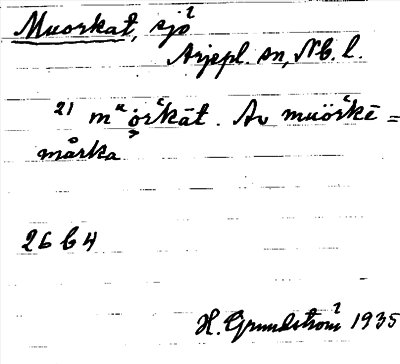 Muorkat, sjö
Arjepl. sn, Nb. l.
21 mᵘörkāt. Av muörkē =
mårka
26 b 4
H. Grundström 1935